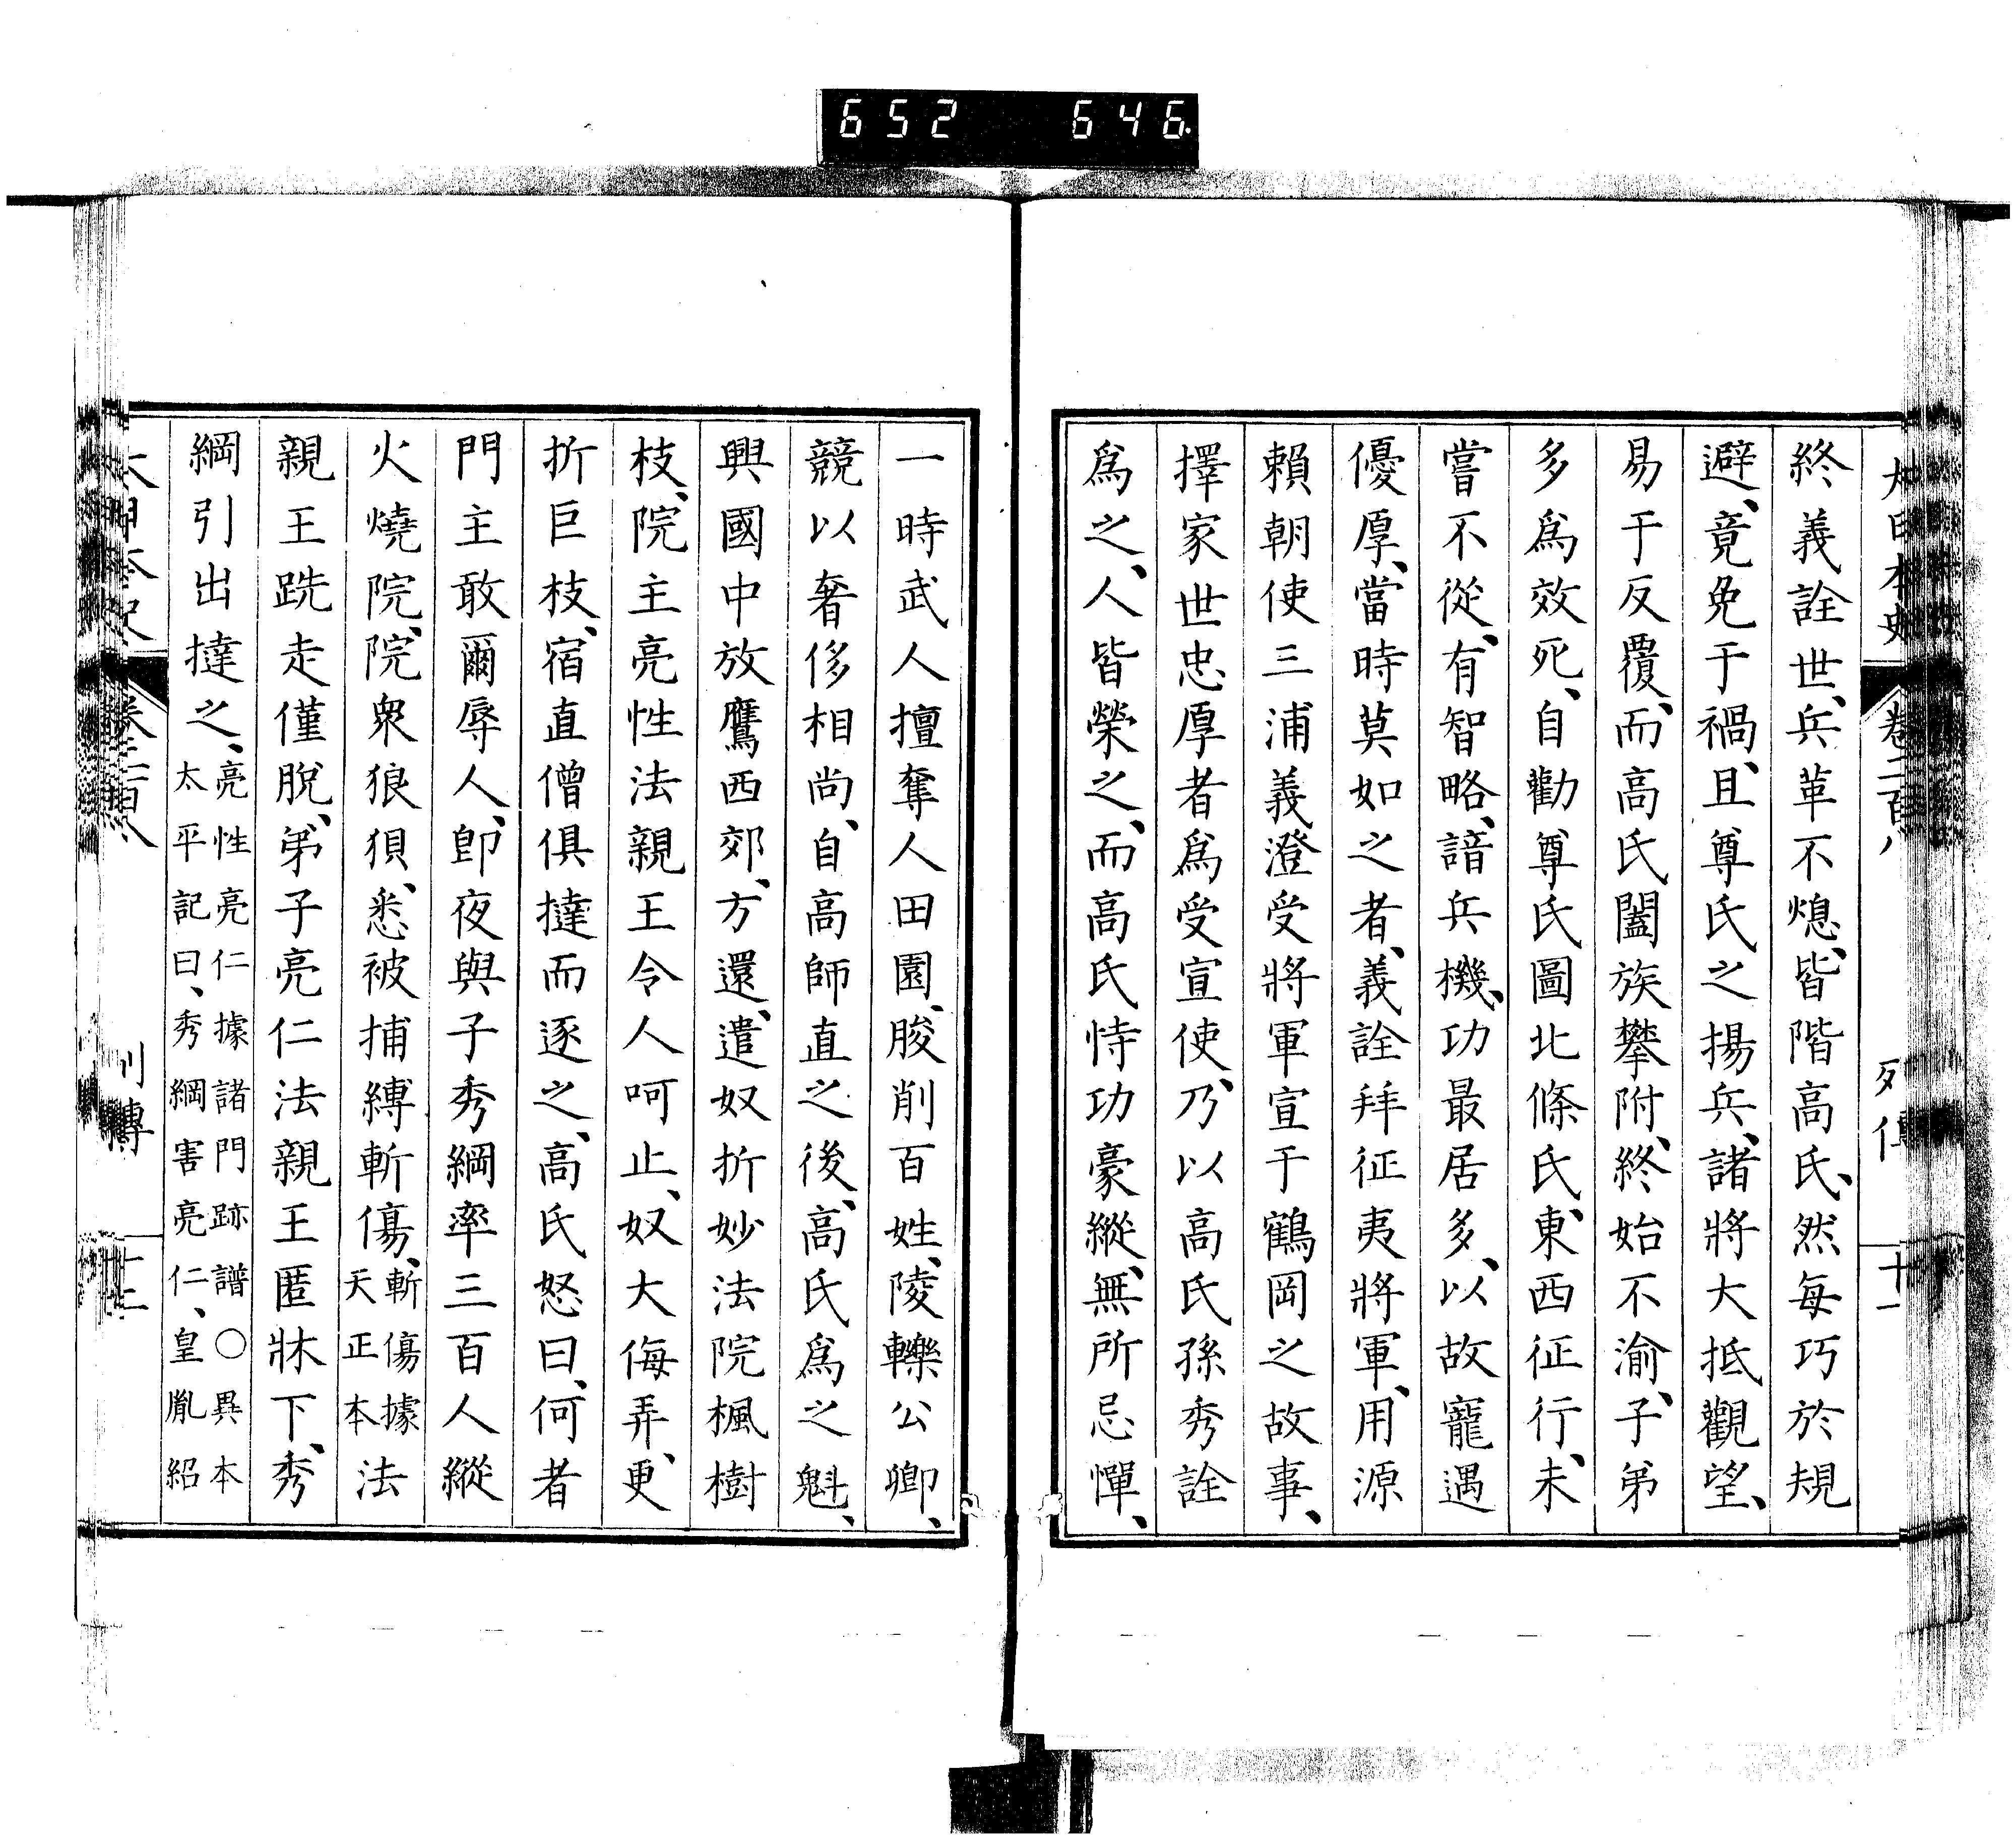 652 646
大日本史 卷二百八 列傳 十一
終義詮世、兵革不熄、皆階高氏、然每巧於規
避、竟免于禍、且尊氏之揚兵、諸將大抵觀望、
易于反覆、而高氏闔族攀附、終始不渝、子弟
多爲效死、自勸尊氏圖北條氏、東西征行、未
嘗不從、有智略、諳兵機、功最居多、以故寵遇
優厚、當時莫如之者、義詮拜征夷將軍、用源
賴朝使三浦義澄受將軍宣于鶴岡之故事、
擇家世忠厚者爲受宣使、乃以高氏孫秀詮
爲之、人皆榮之、而高氏恃功豪縱、無所忌憚、
一時武人擅奪人田園、朘削百姓、陵轢公卿、
競以奢侈相尚、自高師直之後、高氏爲之魁、
興國中放鷹西郊、方還、遣奴折妙法院楓樹
枝、院主亮性法親王令人呵止、奴大侮弄、更
折巨枝、宿直僧俱撻而逐之、高氏怒曰、何者
門主敢爾辱人、卽夜與子秀綱率三百人縱
火燒院、院衆狼狽、悉被捕縛斬傷、斬傷據天正本法
親王跣走僅脫、弟子亮仁法親王匿牀下、秀
綱引出撻之、亮性亮仁據諸門跡譜○異本太平記曰、秀綱害亮仁、皇胤紹
大日本史 卷二百八 列傳 十二